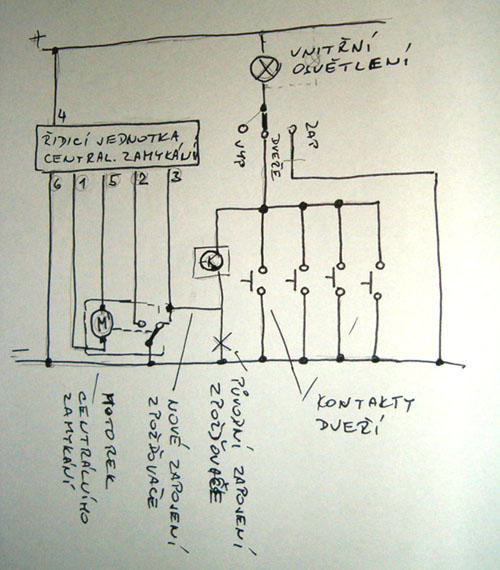 +
VNITŘNÍ
OSVĚTLENÍ
4
ŘÍDICÍ JEDNOTKA
CENTRAL. ZAMYKÁNÍ
6 1 5 2 3
VYP
DVEŘE
ZAP
K
M
−
MOTOREK
CENTRÁLNÍHO
ZAMYKÁNÍ
NOVÉ ZAPOJENÍ
ZPOŽĎOVAČE
PŮVODNÍ ZAPOJENÍ
ZPOŽĎOVAČE
KONTAKTY
DVEŘÍ